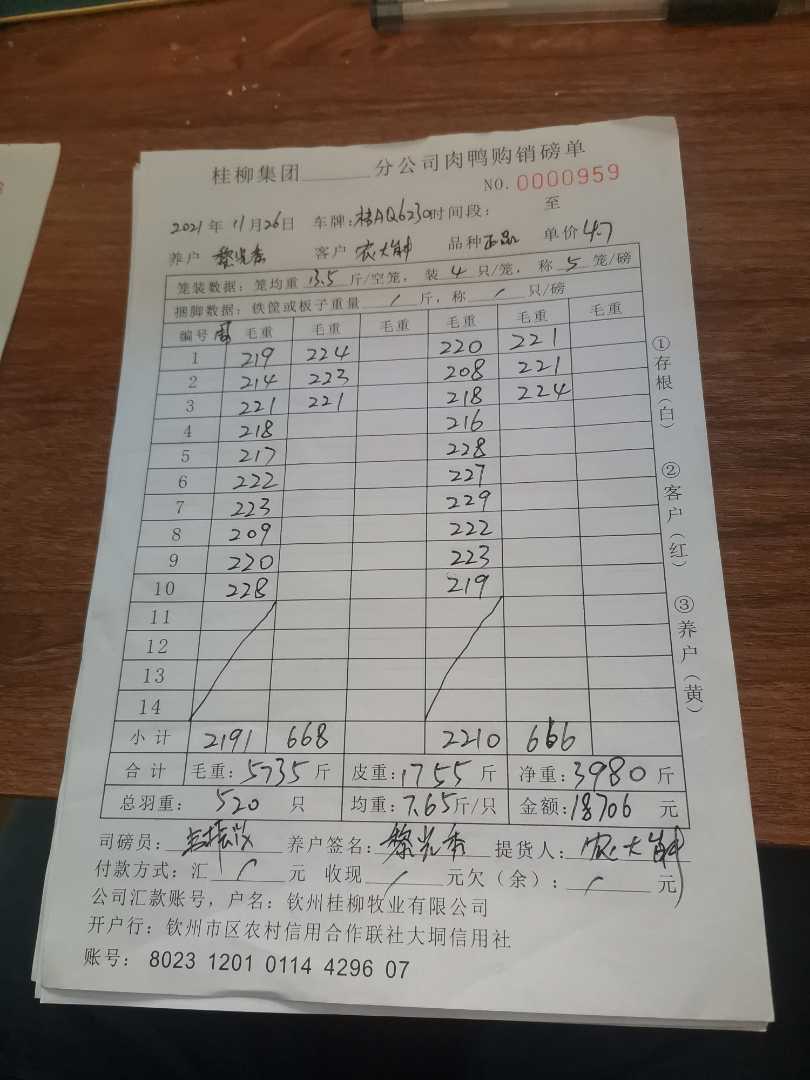 桂柳集团______分公司肉鸭购销磅单
NO. 0000959
2021年11月26日 车牌:桂AQ6230时间段: 至
养户 黎光秀 客户 农大帥 品种 正品 单价 4.7
笼装数据:笼均重 13.5 斤/空笼, 装 4 只/笼, 称 5 笼/磅
捆脚数据:铁筐或板子重量 / 斤,称 / 只/磅
编号 毛重 毛重 毛重 毛重 毛重 毛重
1 219 224 220 221
2 214 223 208 221
3 221 221 218 224
4 218 216
5 217 228
6 222 227
7 223 229
8 209 222
9 220 223
10 228 219
11
12
13
14
小计 2191 668 2210 666
合计 毛重:5735斤 皮重:1755斤 净重:3980斤
总羽重: 520 只 均重:7.65斤/只 金额:18706 元
司磅员: 养户签名:黎光秀 提货人:农大帥
付款方式:汇 / 元 收现 / 元欠(余): / 元
公司汇款账号,户名:钦州桂柳牧业有限公司
开户行:钦州市区农村信用合作联社大垌信用社
账号: 8023 1201 0114 4296 07
①存根(白) ②客户(红) ③养户(黄)